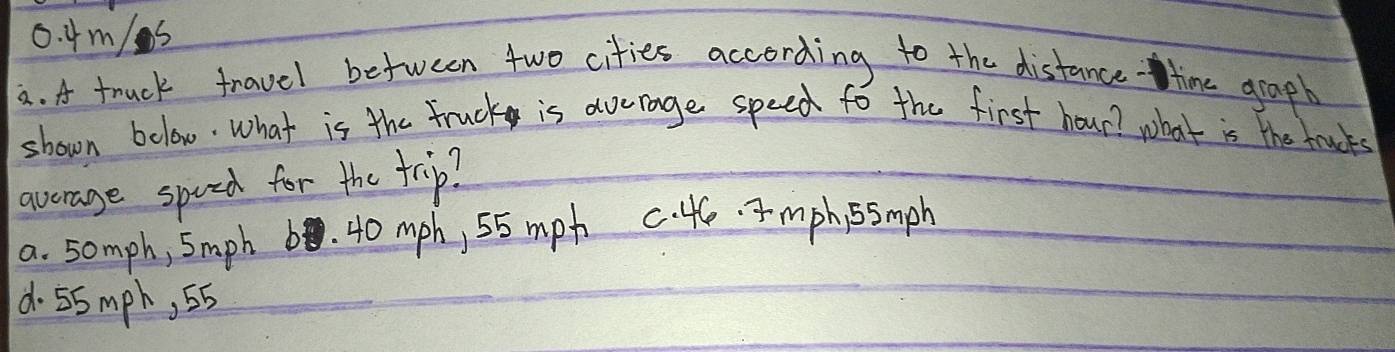 0.4 m/s
2. A truck travel between two cities according to the distance-time graph
shown below. What is the truck is average speed fo the first hour? What is the trucks
average speed for the trip?
a. 50mph, 5mph b. 40 mph, 55 mph c. 46.7mph, 55mph
d. 55 mph, 55